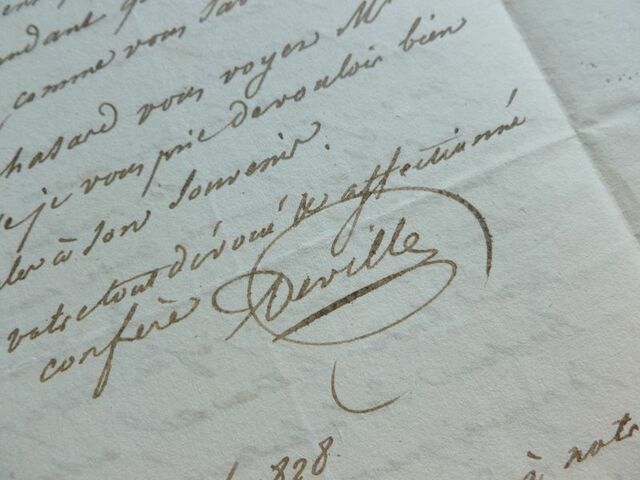 comme vous
hasard vous voyez Mr
je vous prie de vouloir bien
à son souvenir.
votre tout dévoué & affectionné
confrère Deville
828
à notre